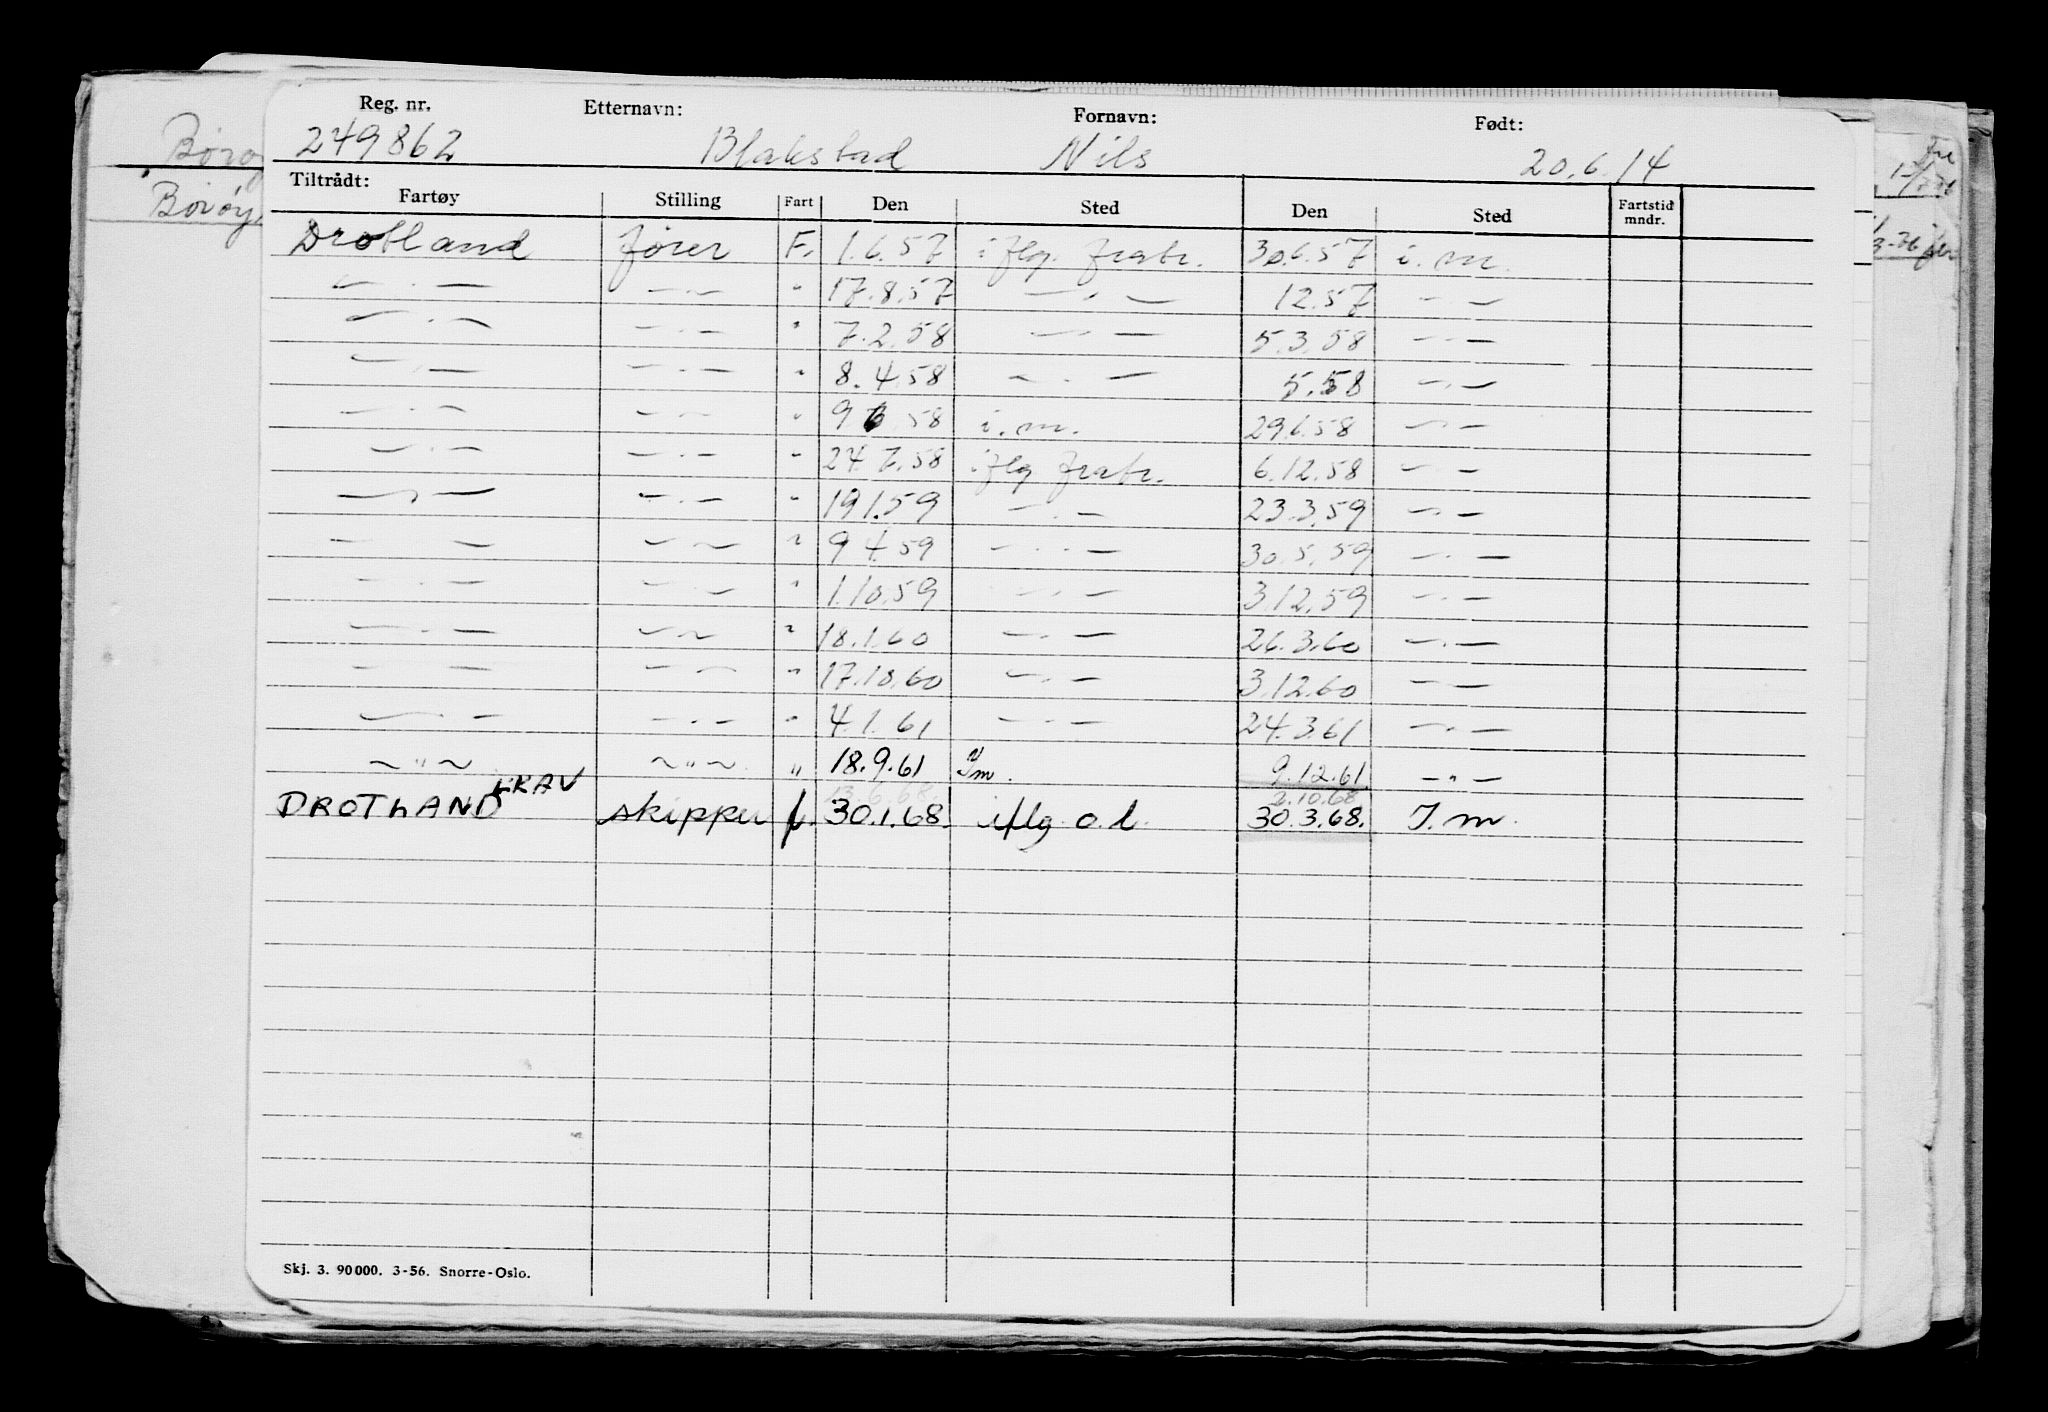 Reg. nr. Etternavn: Fornavn: Født:
249862 Blakstad Nils 20.6.14
Tiltrådt:
Fartøy Stilling Fart Den Sted Den Sted Fartstid mndr.
Drotland fører F. 1.6.57 iflg. fratr. 30.6.57 i.m.
— . — — . — " 17.8.57 — . — 12.57 — . —
— . — — . — " 7.2.58 — . — 5.3.58 — . —
— . — — . — " 8.4.58 — . — 5.58 — . —
— . — — . — " 9.6.58 i.m. 29.6.58 — . —
— . — — . — " 24.7.58 iflg fratr. 6.12.58 — . —
— . — — . — " 19.1.59 — . — 23.3.59 — . —
— . — — . — " 9.4.59 — . — 30.5.59 — . —
— . — — . — " 1.10.59 — . — 3.12.59 — . —
— . — — . — " 18.1.60 — . — 26.3.60 — . —
— . — — . — " 17.10.60 — . — 3.12.60 — . —
— . — — . — " 4.1.61 — . — 24.3.61 — . —
~ " ~ ~ " ~ " 18.9.61 Im. 9.12.61 — " —
LKAV 13.6.68 2.10.68
DROTLAND skipper f. 30.1.68. iflg o.l. 30.3.68. I.m.
Skj. 3. 90 000. 3-56. Snorre-Oslo.
Børøy